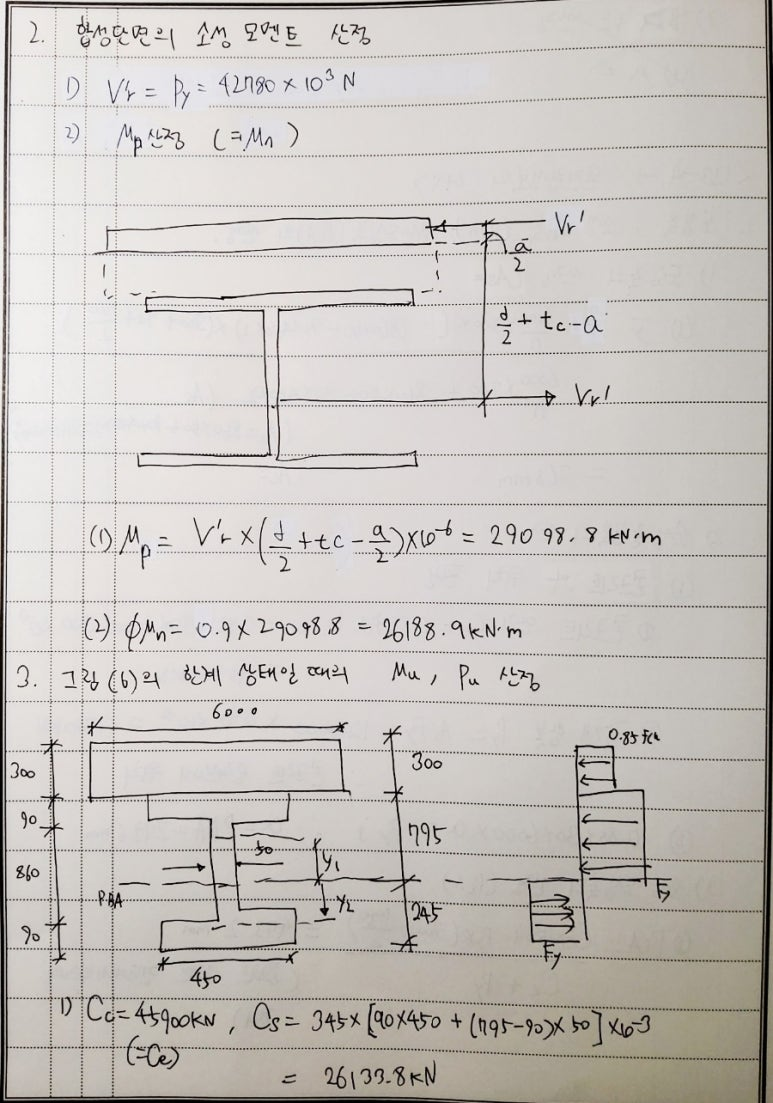 2. 합성단면의 소성 모멘트 산정
1) V'r = Py = 42780 × 10³ N
2) Mp 산정 (= Mn)
Vr'
a/2
d/2 + tc - a
Vr'
(1) Mp = V'r × (d/2 + tc - a/2) × 10⁻⁶ = 29098.8 kN·m
(2) ϕMn = 0.9 × 29098.8 = 26188.9 kN·m
3. 그림 (b)의 한계 상태일 때의 Mu, Pu 산정
6000
300
300
0.85 fck
90
50
y1
795
860
PNA
y2
Fy
245
90
Fy
450
1) Cc = 45900 kN, Cs = 345 × [90×450 + (795-90)×50] × 10⁻³
(=Ce)
= 26133.8 kN